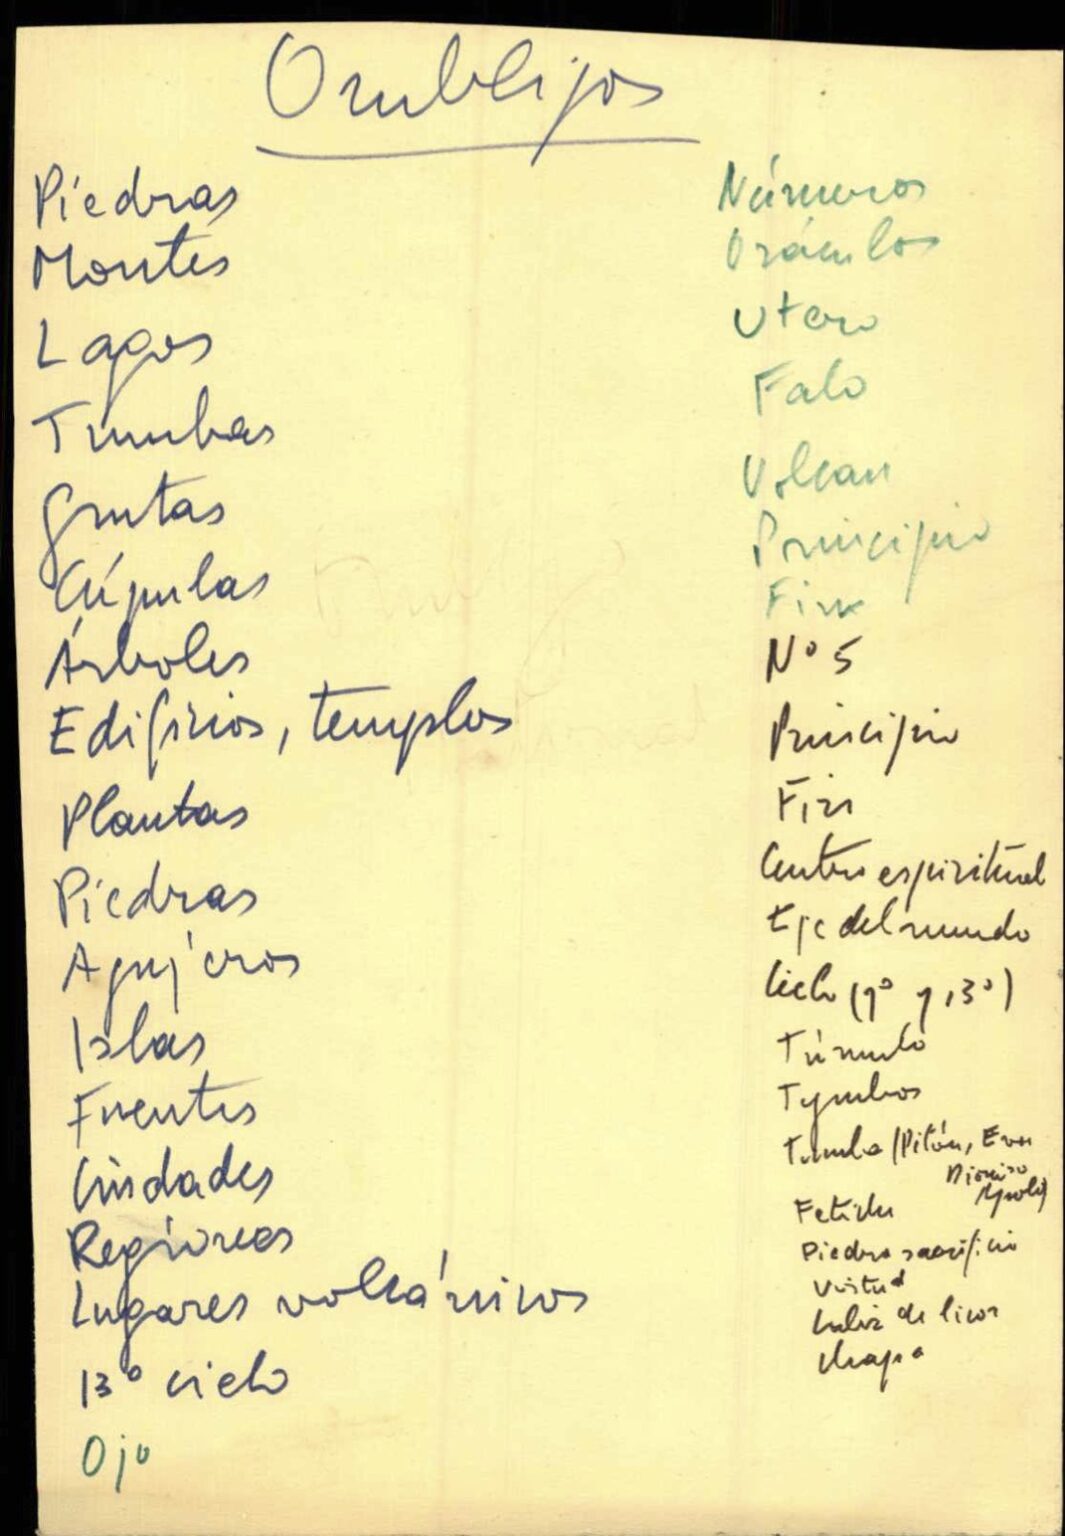 Ombligos
Piedras
Montes
Lagos
Tumbas
Grutas
Cúpulas
Árboles
Edificios, templos
Plantas
Piedras
Agujeros
Islas
Fuentes
Ciudades
Regiones
Lugares volcánicos
13º cielo
Ojo
Números
Oráculos
Utero
Falo
Volcan
Principio
Fin
Nº 5
Principio
Fin
Centro espiritual
Eje del mundo
Cielo (9º y 13º)
Túmulo
Tymbos
Tumba (Pitón, Eva
Dioniso
Apolo)
Fetiche
Piedra sacrificio
Virtud
de licor